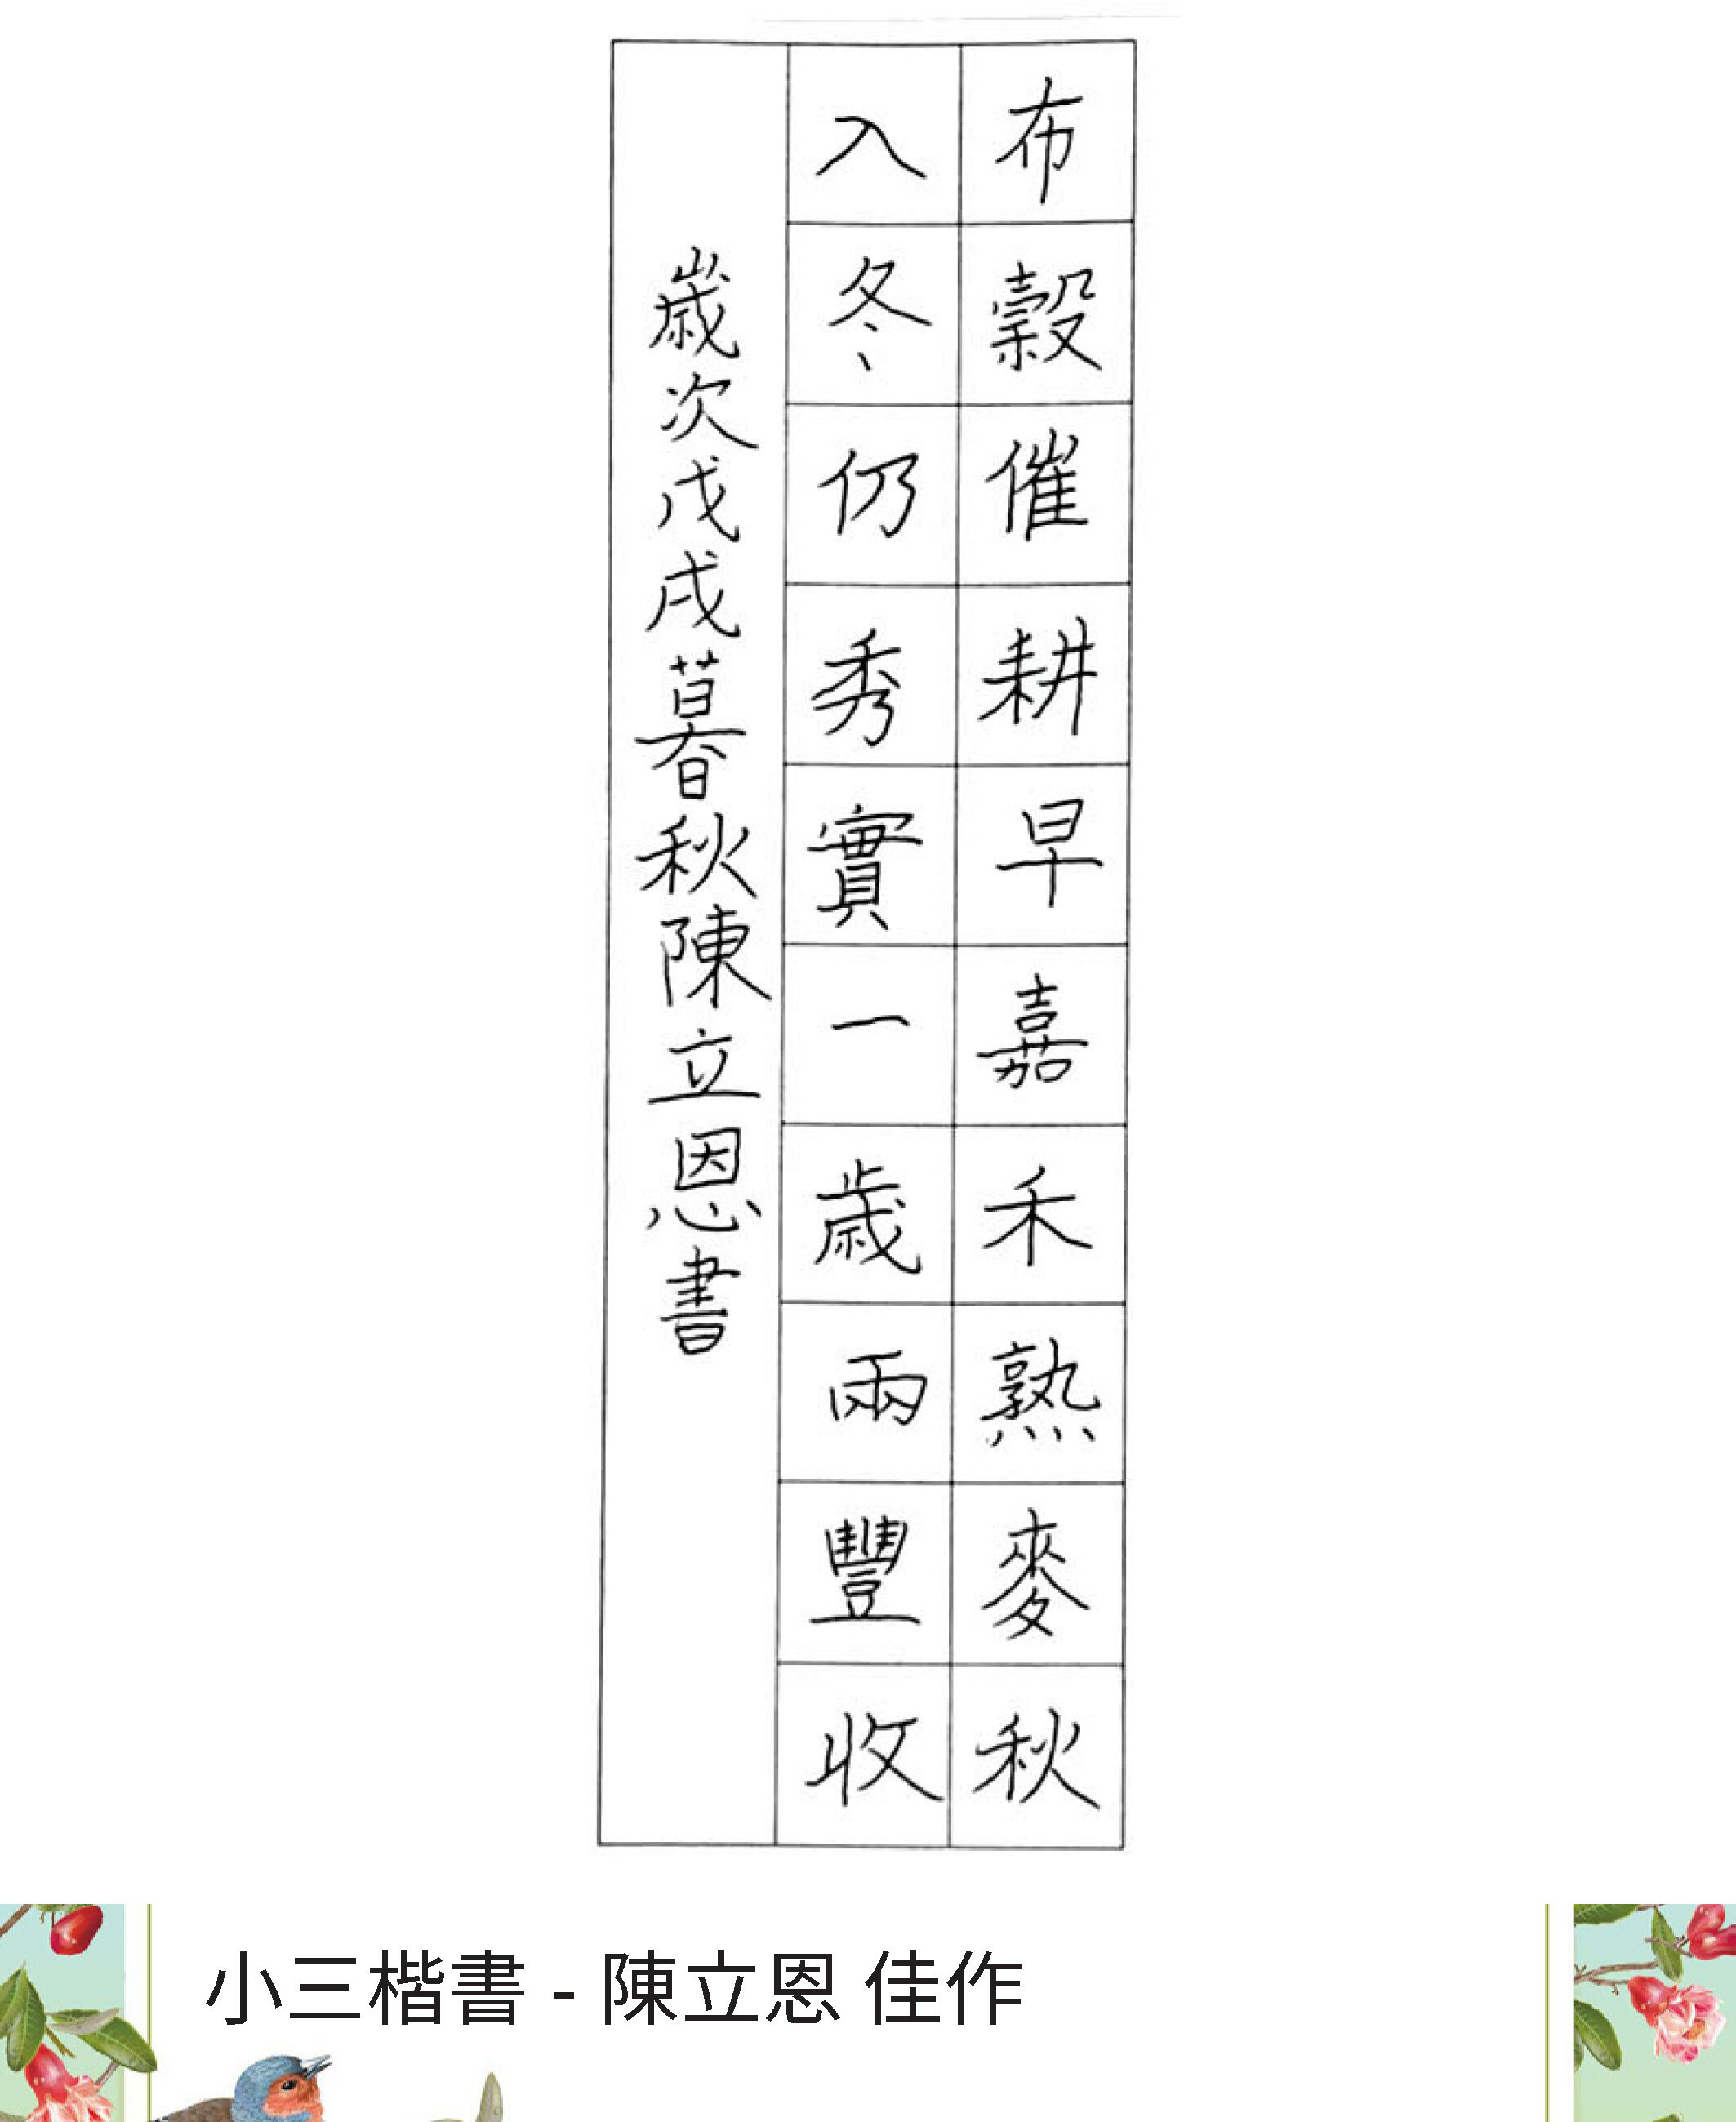 布穀催耕早嘉禾熟麥秋
入冬仍秀實一歲兩豐收
歲次戊戌暮秋陳立恩書
小三楷書 - 陳立恩 佳作